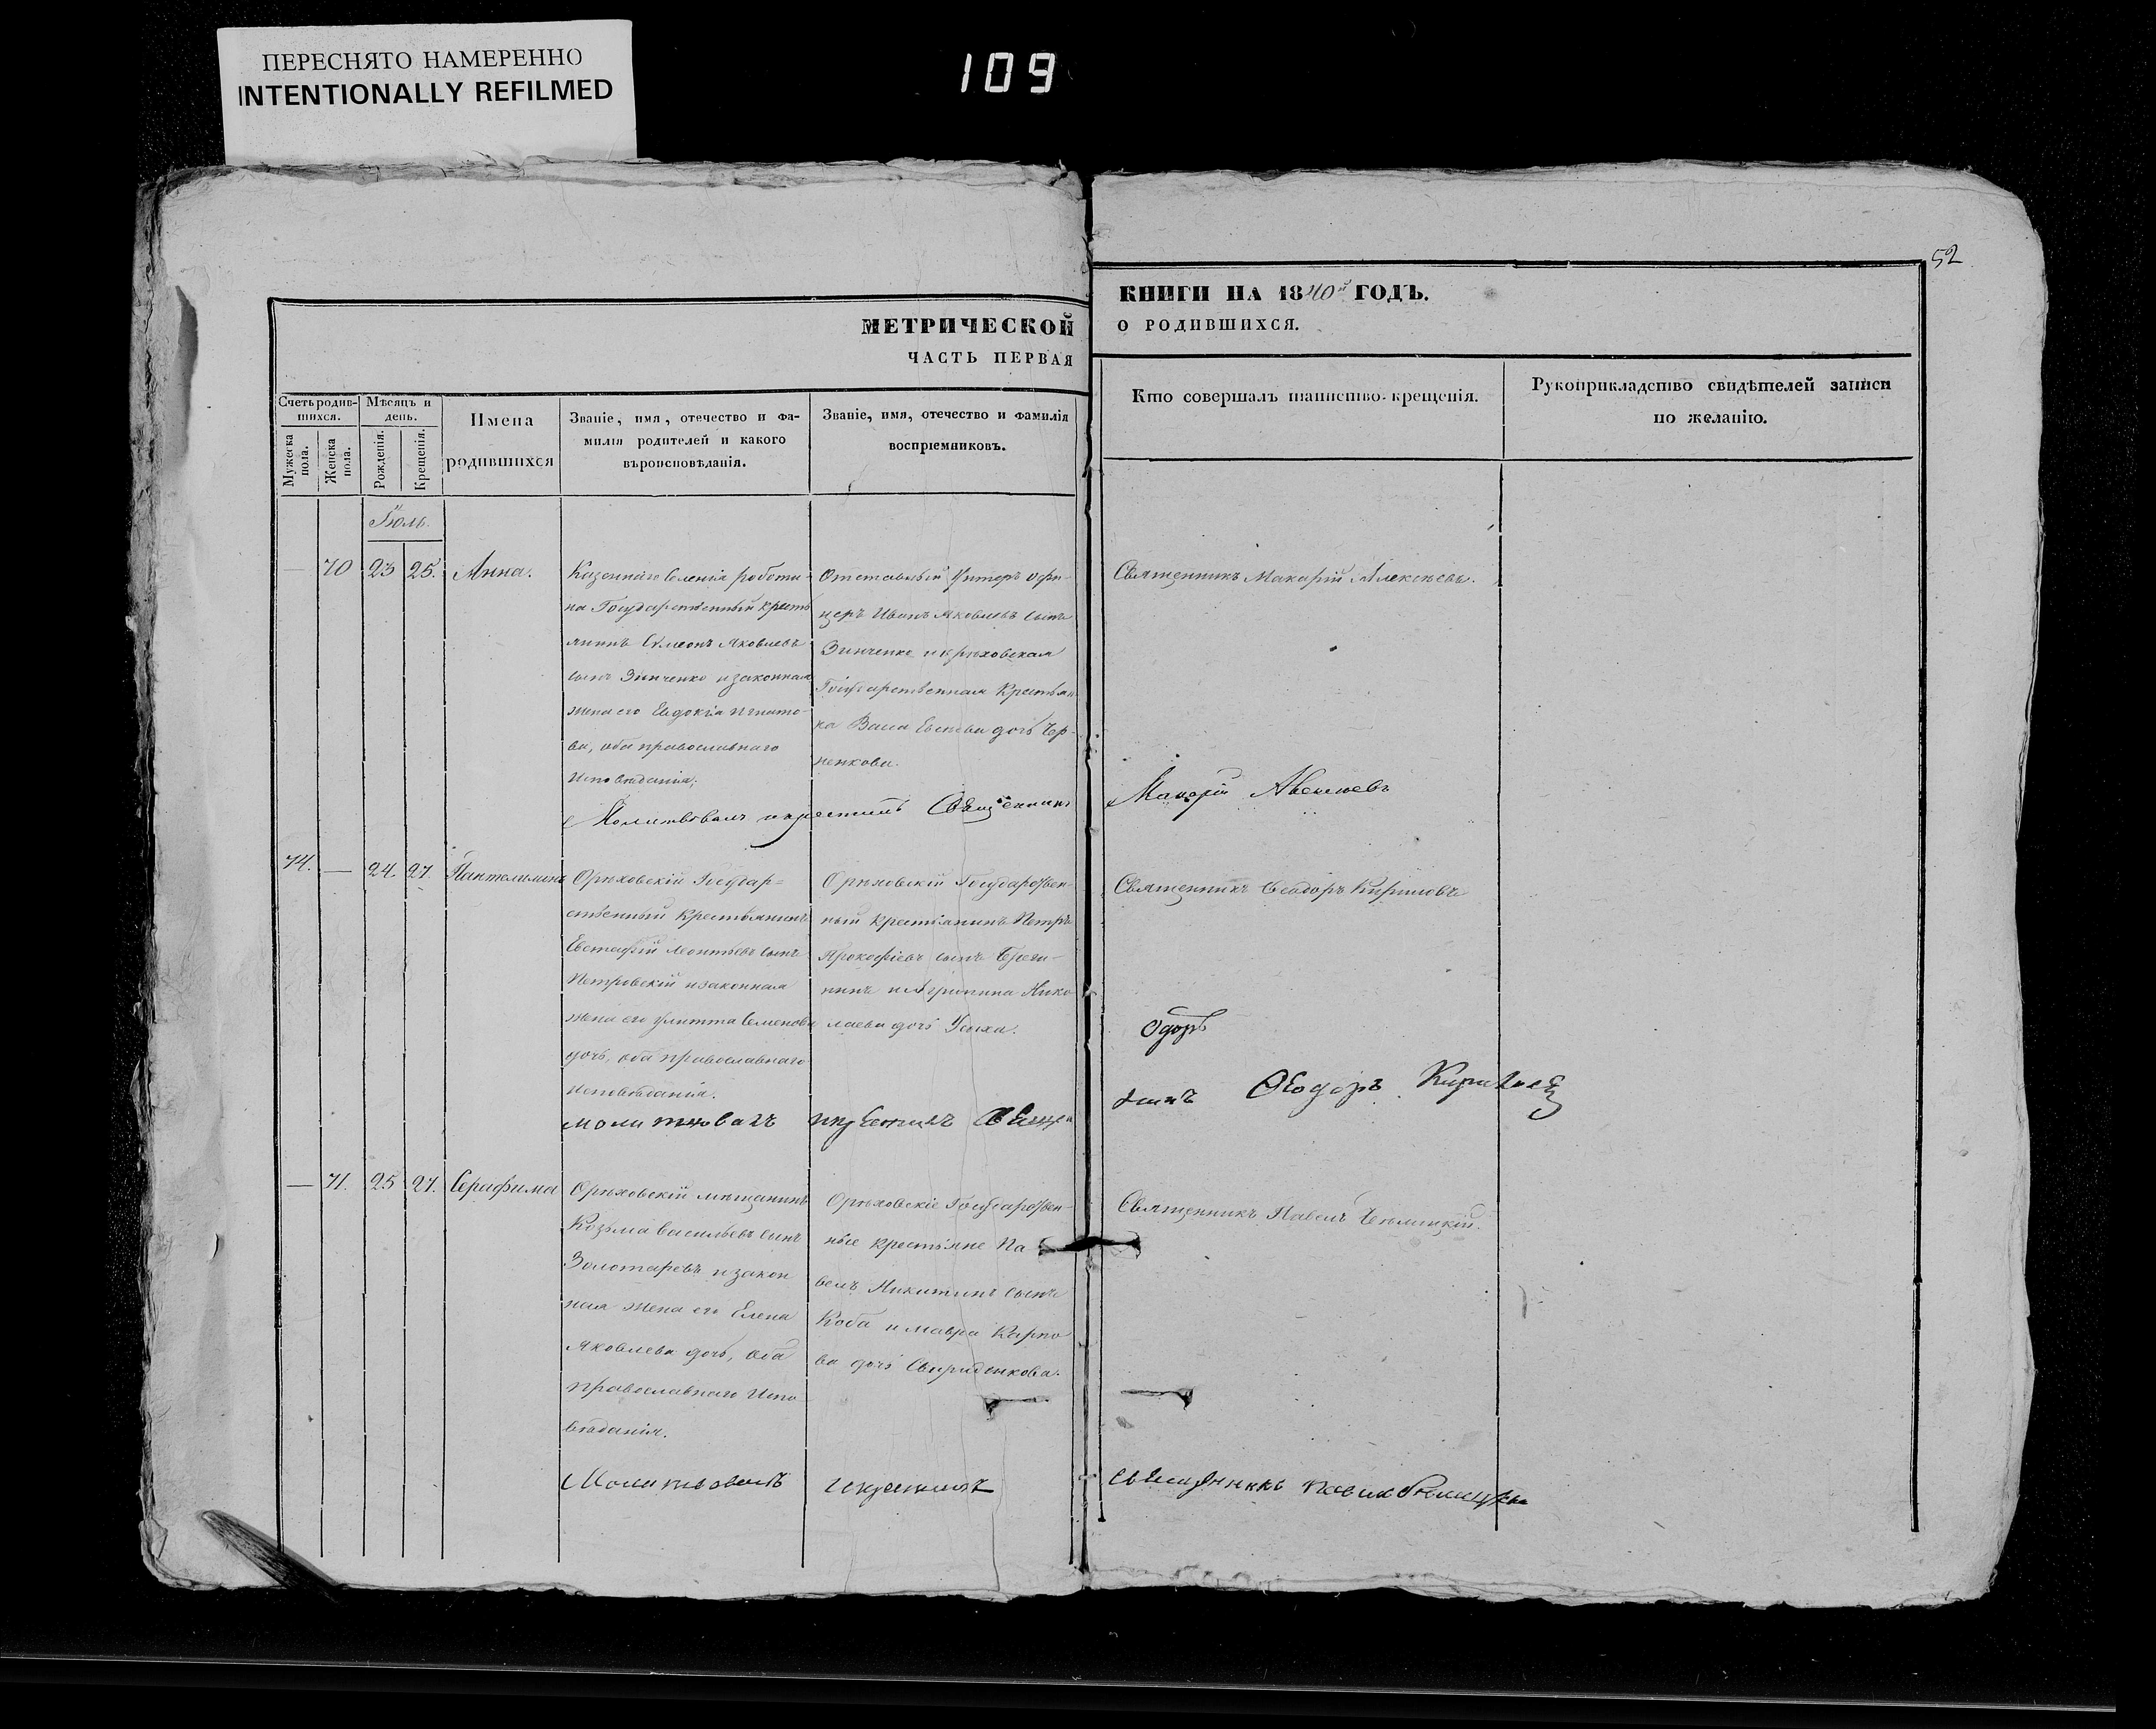 ПЕРЕСНЯТО НАМЕРЕННО
INTENTIONALLY REFILMED
109
52
МЕТРИЧЕСКОЙ
ЧАСТЬ ПЕРВАЯ
КНИГИ НА 1840й ГОДЪ.
О РОДИВШИХСЯ.
Счетъ родив-
шихся.
Мужеска
пола.
Женска
пола.
Мѣсяцъ и
день.
Рожденія.
Крещенія.
Имена
родившихся
Званіе, имя, отечество и фа-
милія родителей и какого
вѣроисповѣданія.
Званіе, имя, отечество и фамилія
воспріемниковъ.
Кто совершалъ таинство крещенія.
Рукоприкладство свидѣтелей записи
по желанію.
Іюль.
— 70 23 25. Анна.
Казеннаго селенія
на Государственный кресть
янинъ Симеонъ Яковлевъ
сынъ Зинченко и законная
жена его Евдокія Игнато-
ва, оба православнаго
исповѣданія;
Отставный Унтеръ офи-
церъ Иванъ Яковлевъ сынъ
Зинченко и орѣховская
Государственная Крестьян
ка дочь Чер-
ненкова.
Священникъ Макарій Алексѣевъ.
Молитвовалъ и крестилъ Священникъ Макарій Алексѣевъ
74. — 24. 27. Пантелимонъ
Орѣховскій Государ=
ственный Крестьянинъ
Евстафій Леонтьевъ сынъ
Петровскій и законная
жена его Улитта Семенова
дочь, оба православнаго
исповѣданія.
Орѣховскій Государствен-
ный крестьянинъ Петръ
Прокофіевъ сынъ
и Агрипина Нико
лаева дочь
Священникъ Ѳеодоръ Кириловъ
Ѳдоръ
молитвовалъ и крестилъ Свещен
Ѳеодоръ
— 71. 25 27. Серафима
Орѣховскій мѣщанинъ
Козьма Васильевъ сынъ
Золотаревъ и закон
ная жена его Елена
Яковлева дочь, оба
православнаго испо
вѣданія.
Орѣховскіе Государствен-
ные крестьяне Па
велъ Никитинъ сынъ
Коба и Мавра Карпо
ва дочь Свириденкова.
Священникъ Павелъ
Молитвовалъ и крестилъ священникъ Павелъ